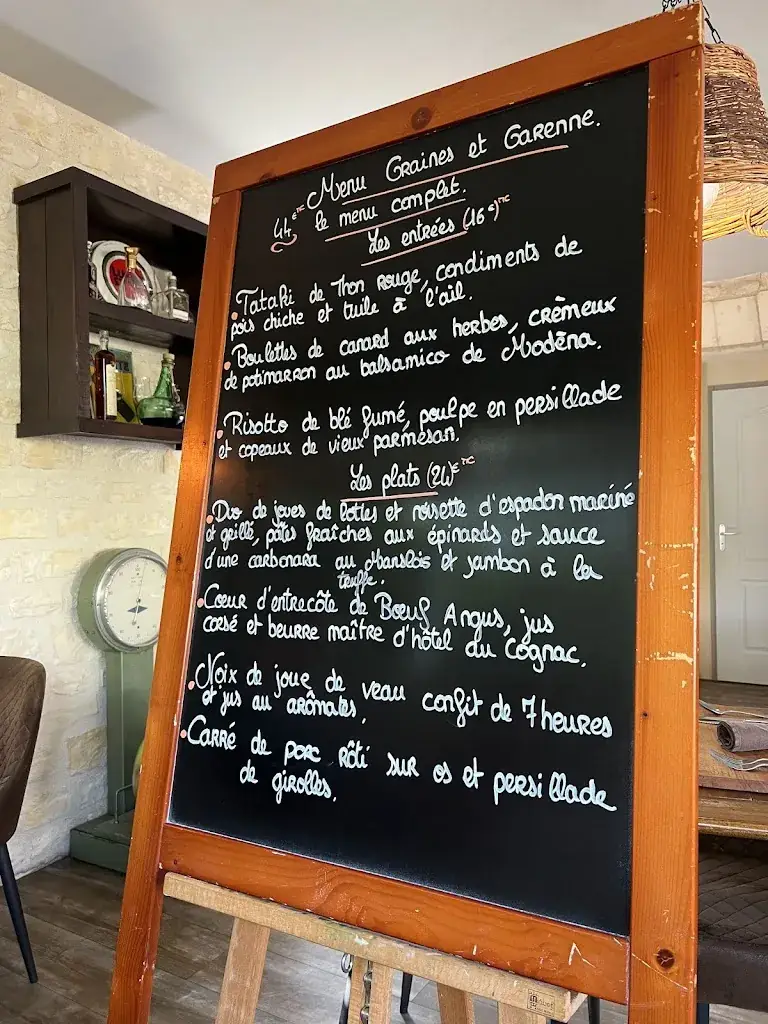 Menu Graines et Garenne.
44€TTC le menu complet.
Les entrées (16€)TTC
•Tataki de Thon rouge, condiments de
pois chiche et tuile à l'ail.
•Boulettes de canard aux herbes, crèmeux
de potimarron au balsamico de Modèna.
•Risotto de blé fumé, poulpe en persillade
et copeaux de vieux parmésan.
Les plats (24)€TTC
•Duo de joues de lottes et noisette d'espadon mariné
et grillé, pâtes fraîches aux épinards et sauce
d'une carbonara au Manslois et jambon à la
truffe.
•Coeur d'entrecôte de Boeuf Angus, jus
corsé et beurre maître d'hôtel du Cognac.
•Noix de joue de veau confit de 7 heures
et jus au arômates.
•Carré de porc rôti sur os et persillade
de girolles.